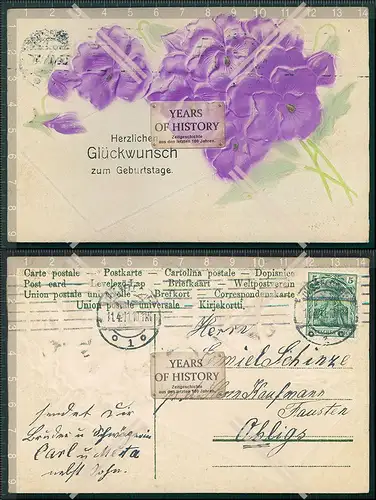 YEARS
OF HISTORY
Zeitgeschichte
aus den letzten 100 Jahren.
Herzlichen
Glückwunsch
zum Geburtstage.
Carte postale — Postkarte — Cartolina postale — Dopisnice
Post card — Levelező-Lap — Briefkaart — Weltpostverein
Union postale universelle — Brefkort — Correspondenzkarte
Union postale universale — Kirjekortti.
Herrn
Schinze
YEARS
OF HISTORY
Zeitgeschichte
aus den letzten 100 Jahren.
Kaufmann
Ohligs
sendet Dir
Bruder u Schwägerin
Carl u Meta
nebst Sohn.